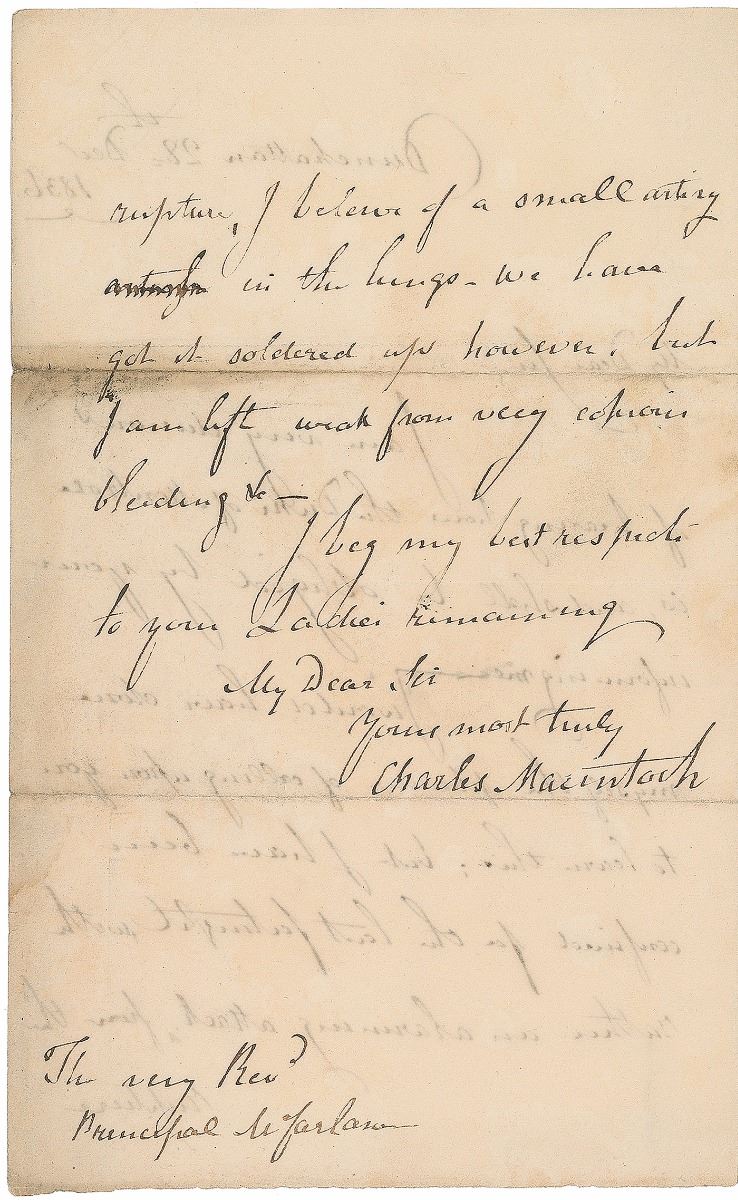 rupture, I beleive of a small artery
in the lungs - we have
got it soldered up however, but
I am left weak from very copious
bleeding &c —
I beg my best respects
to your Ladies remaining
My Dear Sir
Yours most truly
Charles Macintosh
The very Revd
Principal McFarlane